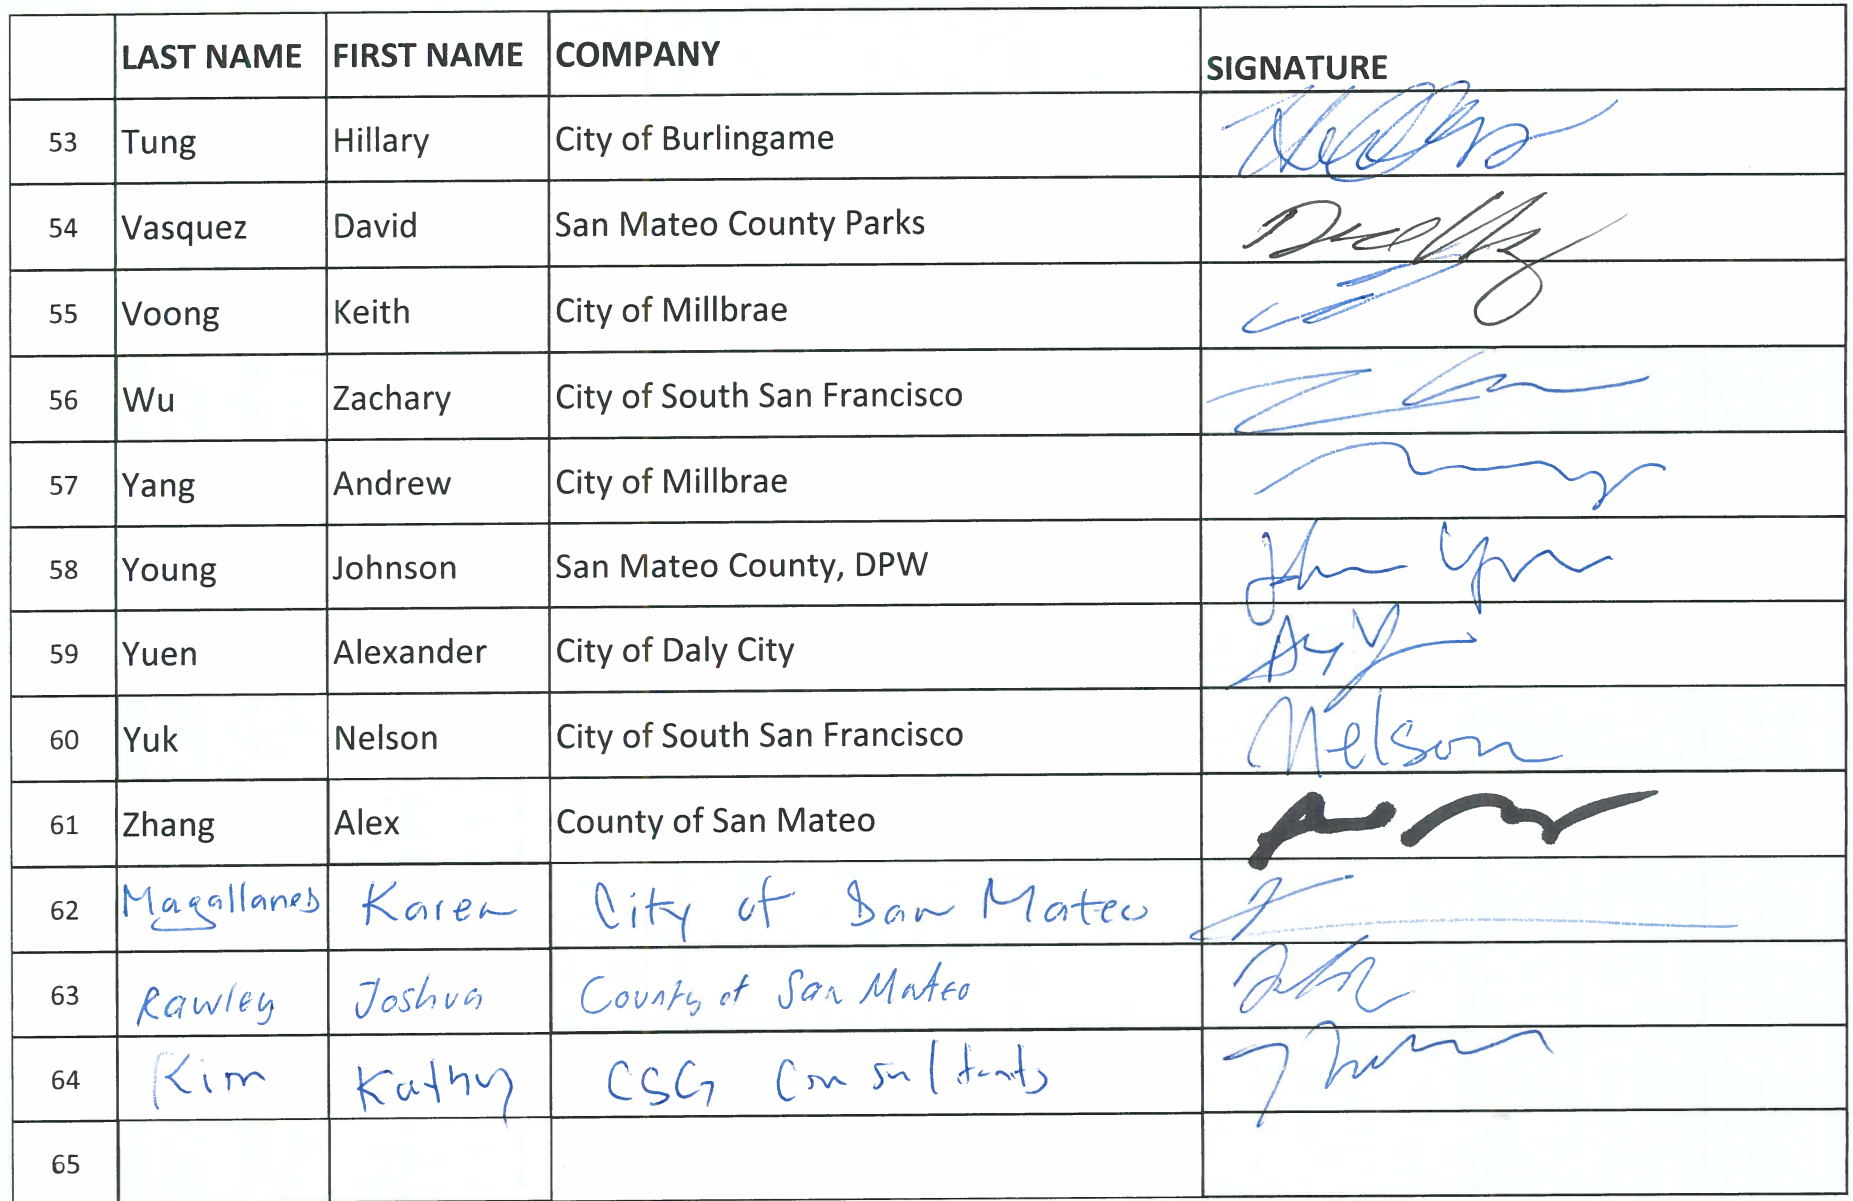 LAST NAME FIRST NAME COMPANY SIGNATURE
53 Tung Hillary City of Burlingame
54 Vasquez David San Mateo County Parks
55 Voong Keith City of Millbrae
56 Wu Zachary City of South San Francisco
57 Yang Andrew City of Millbrae
58 Young Johnson San Mateo County, DPW
59 Yuen Alexander City of Daly City
60 Yuk Nelson City of South San Francisco Nelson
61 Zhang Alex County of San Mateo
62 Magallanes Karen City of San Mateo
63 Rawley Joshua County of San Mateo
64 Kim Kathy CSG Consultants
65